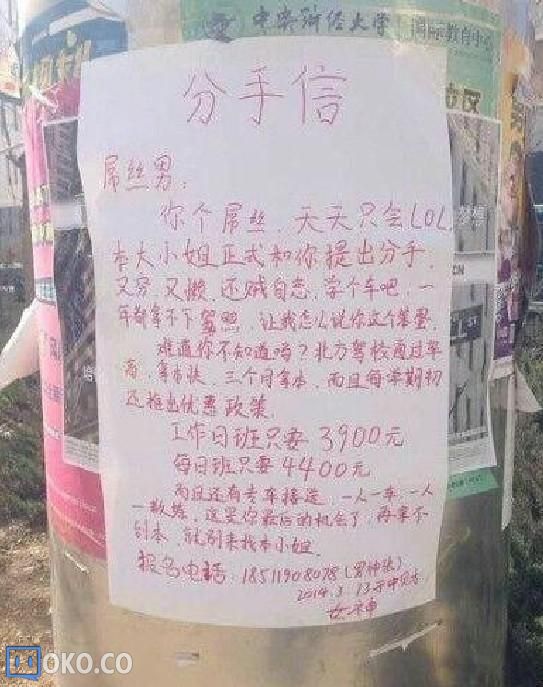 中央财经大学
国际教育中心
分手信
屌丝男:
你个屌丝,天天只会LOL,
本大小姐正式和你提出分手,
又穷,又懒,还贼自恋,学个车吧,一
年都拿不下驾照,让我怎么说你这个笨蛋,
难道你不知道吗?北方驾校通过率
高,拿本快,三个月拿本,而且每学期初
还推出优惠政策,
工作日班只要 3900元
每日班只要 4400元
而且还有专车接送,一人一车,一人
一教练,这是你最后的机会了,再拿不
到本,就别来找本小姐.
报名电话:18511908078(男神张)
2014.3.13于中财大
女神
OKO.CO